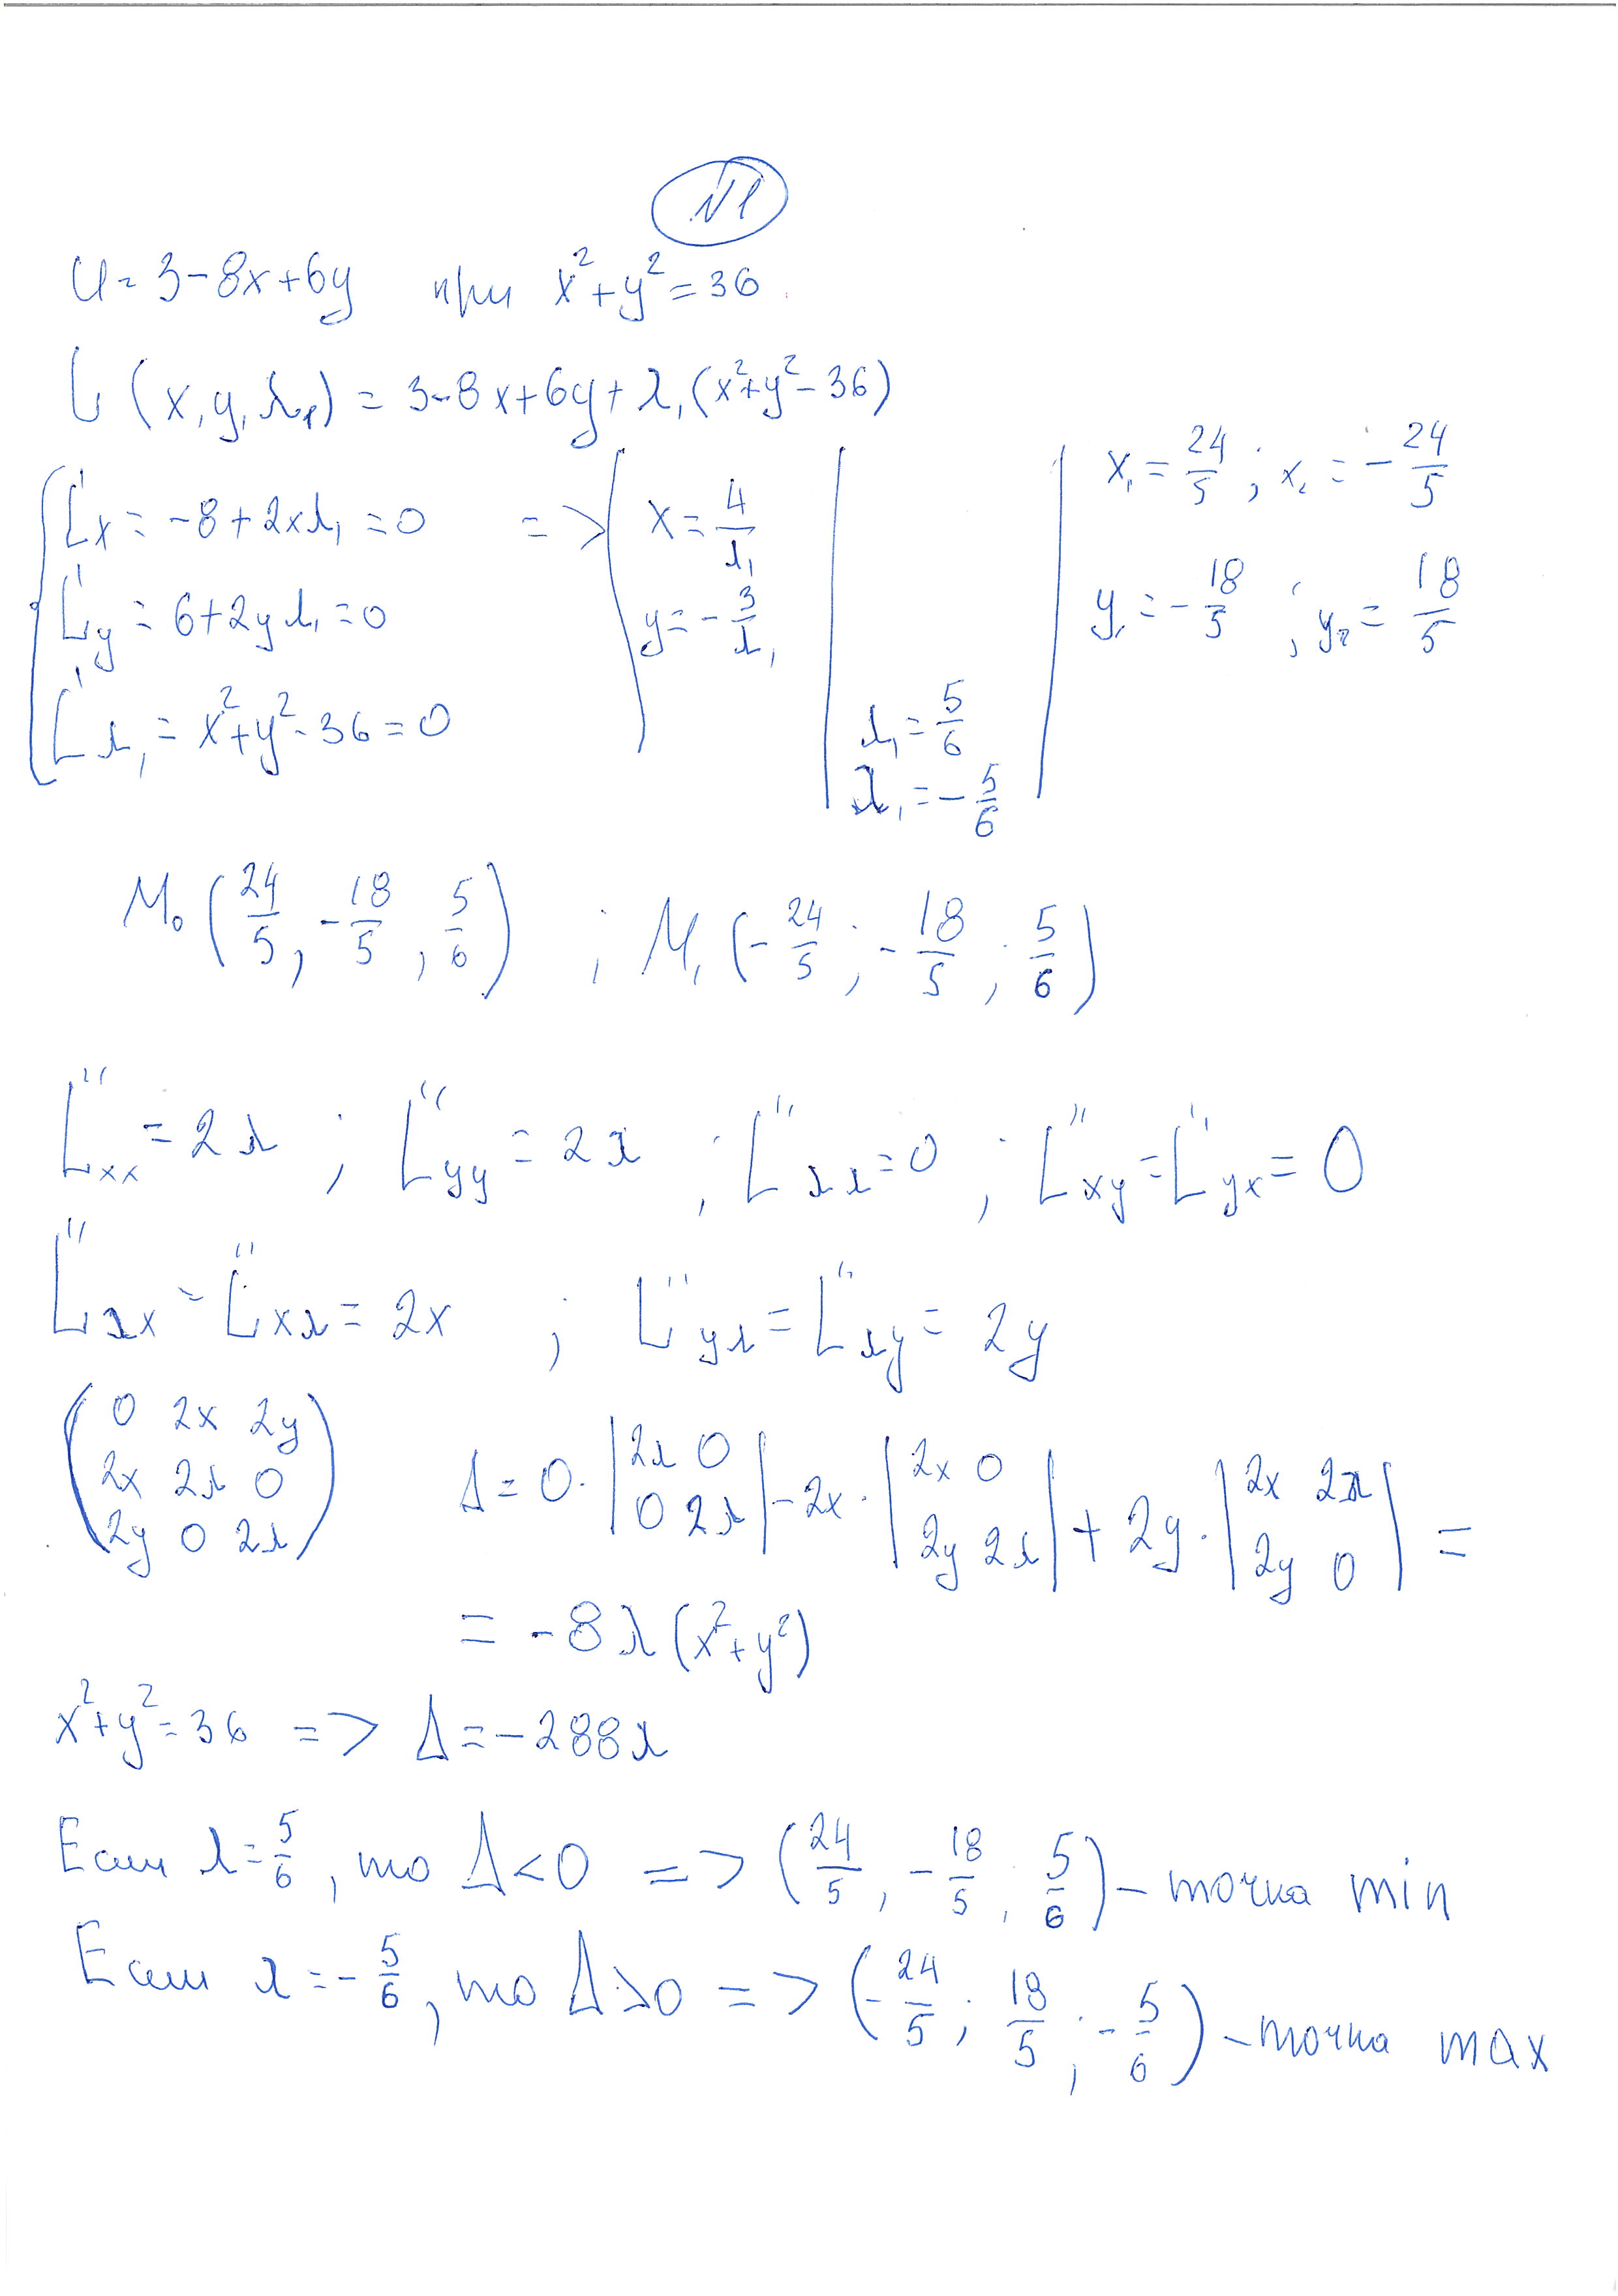 N1
U = 3-8x+6y при x²+y²=36
L (x, y, λ₁) = 3-8x+6y+λ₁(x²+y²-36)
L'x = -8+2xλ₁ = 0 => x = 4/λ₁ x₁ = 24/5 ; x₂ = -24/5
L'y = 6+2yλ₁ = 0 y = -3/λ₁ y₁ = -18/5 ; y₂ = 18/5
L'λ₁ = x²+y²-36 = 0 λ₁ = 5/6
λ₁ = -5/6
M₀ (24/5, -18/5, 5/6) ; M₁ (-24/5 ; -18/5 ; 5/6)
L''xx = 2λ ; L''yy = 2λ ; L''λλ = 0 ; L''xy = L''yx = 0
L''λx = L''xλ = 2x ; L''yλ = L''λy = 2y
(0 2x 2y
2x 2λ 0
2y 0 2λ) Δ = 0 · |2λ 0
0 2λ| - 2x · |2x 0
2y 2λ| + 2y · |2x 2λ
2y 0| =
= -8λ(x²+y²)
x²+y²=36 => Δ = -288λ
Если λ = 5/6, то Δ<0 => (24/5, -18/5, 5/6) - точка min
Если λ = -5/6, то Δ>0 => (-24/5 ; 18/5 ; -5/6) - точка max